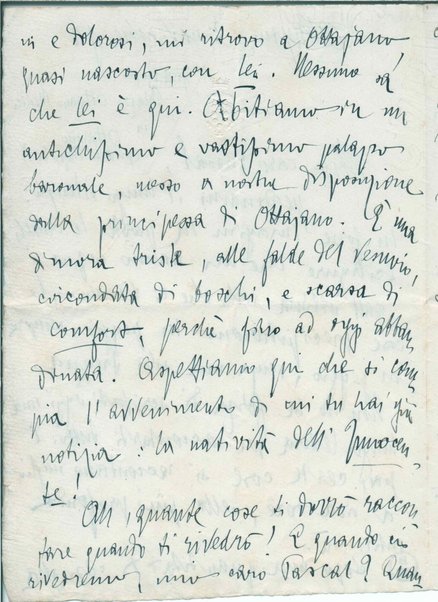 ni e dolorosi, mi ritrovo a Ottajano,
quasi nascosto, con lei. Nessuno sa
che lei è qui. Abitiamo in un
antichissimo e vastissimo palazzo
baronale, messo a nostra disposizione
dalla principessa di Ottajano. È una
dimora triste, alle falde del Vesuvio,
circondata di boschi, e scarsa di
comfort, perchè fino ad oggi abban
donata. Aspettiamo qui che si com
pia l'avvenimento di cui tu hai già
notizia: la natività dell'Innocen
te.
Ah, quante cose ti dovrò raccon
tare quando ti rivedrò! E quando ci
rivedremo, mio caro Pascal? Quan